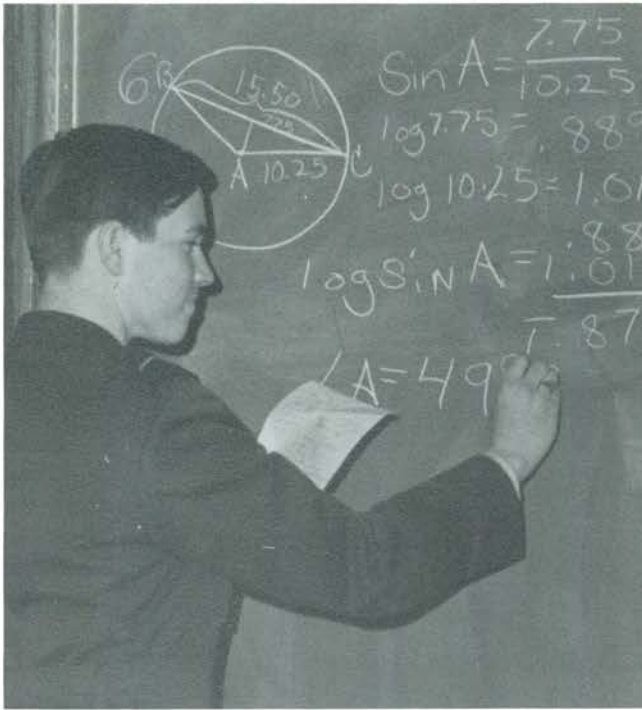 6
B 15.50
7.75
A 10.25 C
Sin A = 7.75
10.25
log 7.75 = .889
log 10.25 = 1.01
.88
log SiN A = 1.01
1.87
∠A = 49°